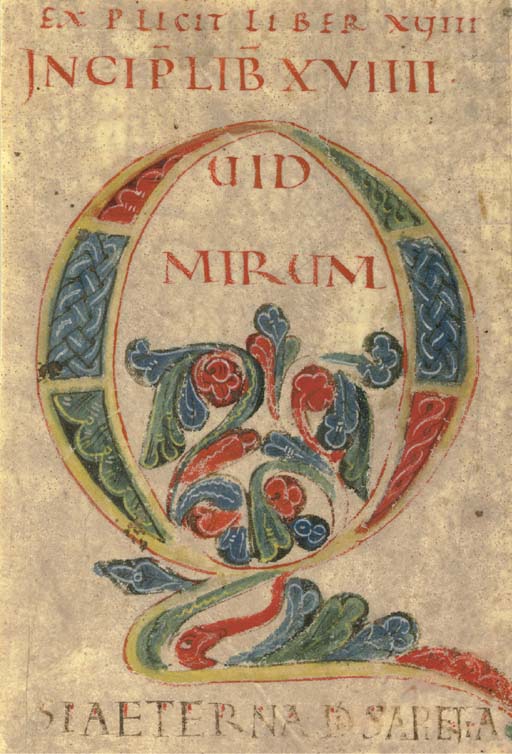 EXPLICIT LIBER XVIIII
INCIP̄ LIB̄ XVIIII
QUID
MIRUM
SI AETERNA DĪ SAPIENTIA